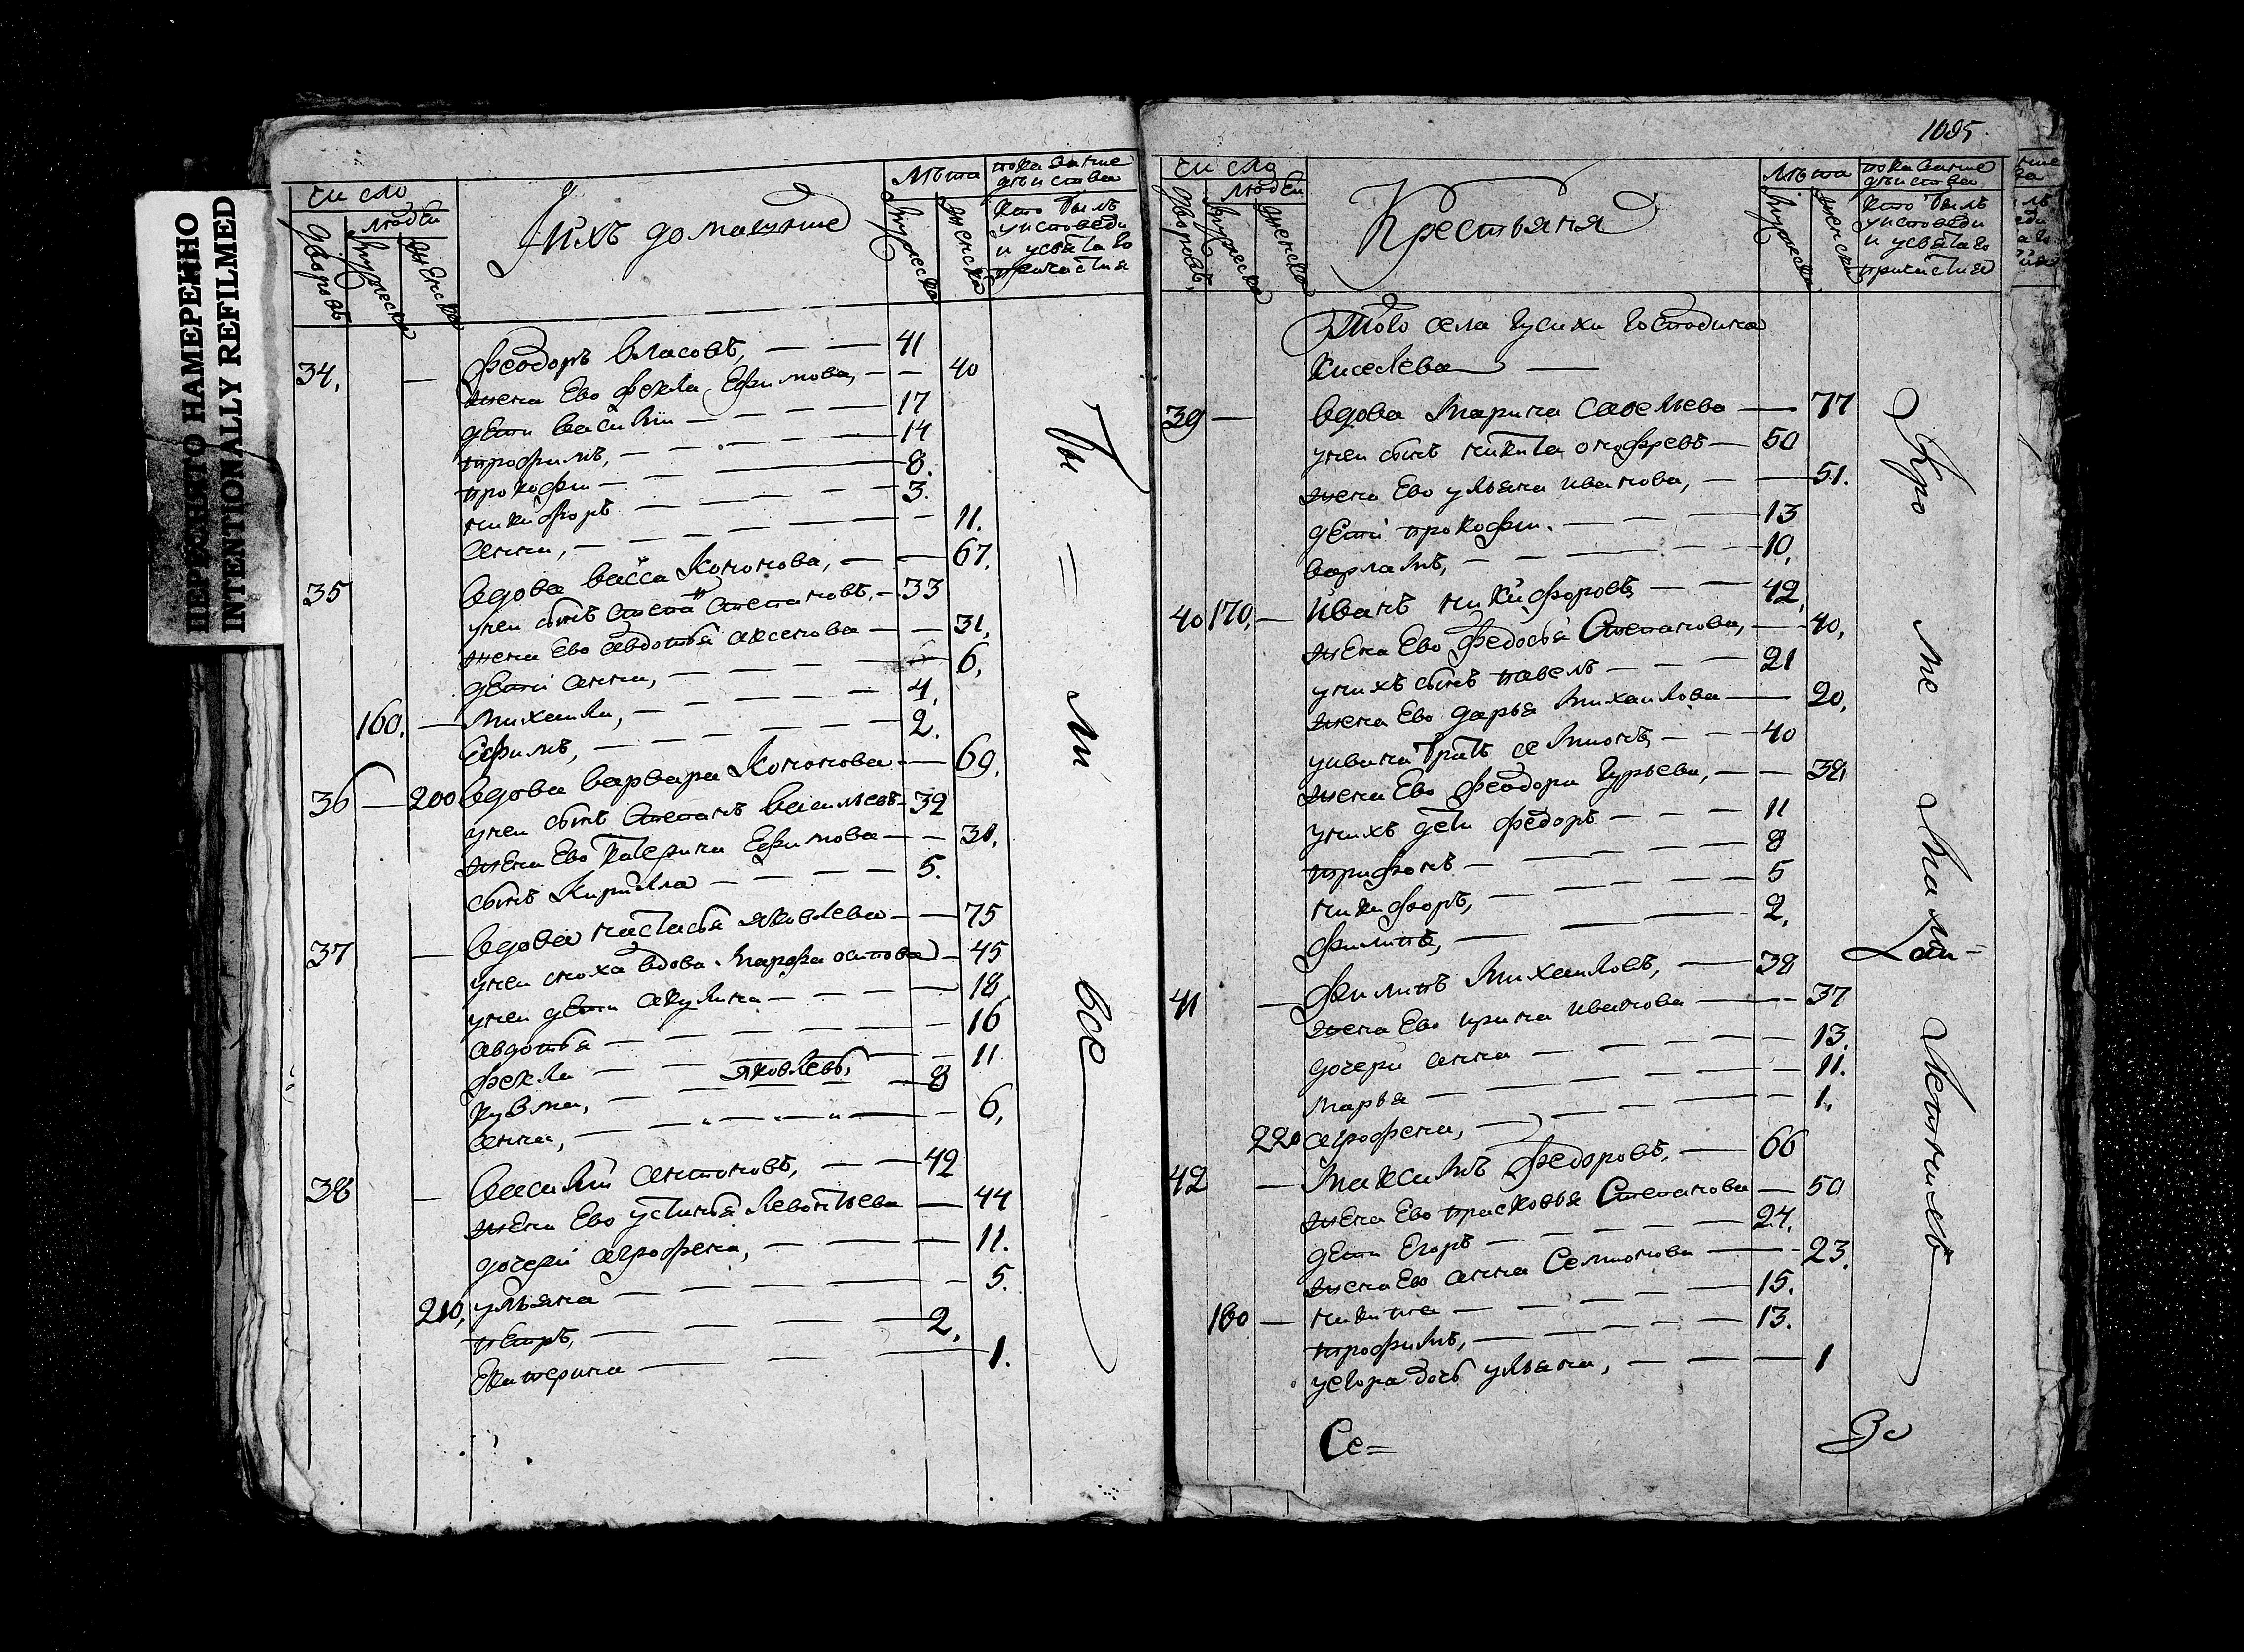 ПЕРЕСНЯТО НАМЕРЕННО
INTENTIONALLY REFILMED
число
людей
дворовъ
мужеска
женска
Ихъ домашние
лѣта
мужеска
женска
показание
действа
кто былъ
уисповеди
и усвятаго
причастия
34. — феодоръ власовъ, — — 41
жена Ево фекла Ефимова, — — 40
дети василии — — — — 17
трофимъ, — — — — 14
прокофи — — — 8.
никифоръ — — — 3.
анна, — — — — 11.
35 вдова васса Кононова, — — 67.
унеи сынъ степанъ Степановъ, — 33
жена Ево авдотья аксенова — — 31,
дети анна, — — — 6,
160. — михаила, — — — 4,
Ефимъ, — — — — 2.
36 — 200 вдова варвара Кононова — 69.
унеи сынъ Степанъ васильевъ — 32
жена Ево катерина Ефимова — — 30,
сынъ Кирилла — — — — 5.
37 — вдова настасья яковлева — — 75
унеи сноха вдова марфа осипова — 45
унеи дети акулина — — — 18
авдотья — — — — 16
фекла — — — 11
кузма, — яковлевъ, — 8
анна, — — — — 6,
38 — василии антоновъ, — — 42
жена Ево устинья левонтьева — 44
дочери агрофена, — — — 11.
210, ульяна — — — — 5.
петръ, — — — — 2.
Екатерина — — — — 1.
Ты = ми все
1085.
число
людеи
дворовъ
мужеска
женска
Крестьяня
лѣта
мужеска
женска
показание
действа
кто былъ
уисповеди
и усвятаго
причастия
Того села гусихи господина
киселева —
39 — вдова марина савельева — 77
унеи сынъ никита онофревъ — 50
жена Ево ульяна иванова, — — 51.
дети прокофии. — — — 13
варламъ, — — — — 10,
40 170, — иванъ никифоровъ — — 42,
жена Ево федосья Степанова, — 40,
унихъ сынъ павелъ — — — 21
жена Ево дарья михаилова — 20,
уивана братъ семионъ — — 40
жена Ево феодора гурьева, — — 38,
унихъ дети федоръ — — — 11
трифонъ — — — — 8
никифоръ, — — — — 5
филипъ, — — — 2,
41 — филипъ михаиловъ, — 38
жена Ево ирина иванова — — 37
дочери анна — — — — 13.
марья — — — — 11.
220 агрофена, — — — — 1.
42 — максимъ федоровъ, — 66
жена Ево прасковья Степанова — 50
дети Егоръ — — — — 24.
жена Ево анна Семионова — — 23.
180 — никита — — — — 15.
трофимъ, — — — — 13.
уегора дочь ульяна, — — — 1
Кро ме
Се=